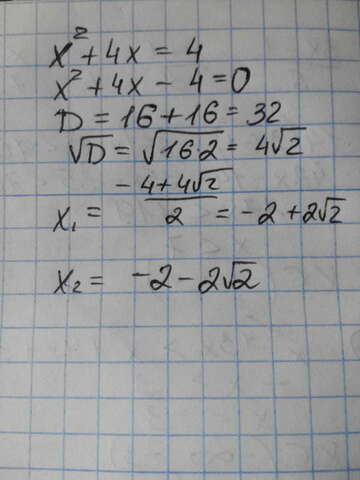 x² + 4x = 4
x² + 4x - 4 = 0
D = 16 + 16 = 32
√D = √(16·2) = 4√2
x₁ = (-4 + 4√2)/2 = -2 + 2√2
x₂ = -2 - 2√2